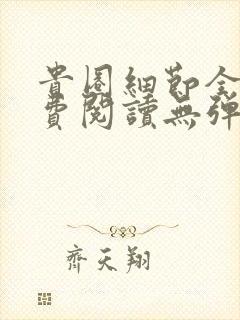 貴圈細節全
費閱讀無彈
齊天翔